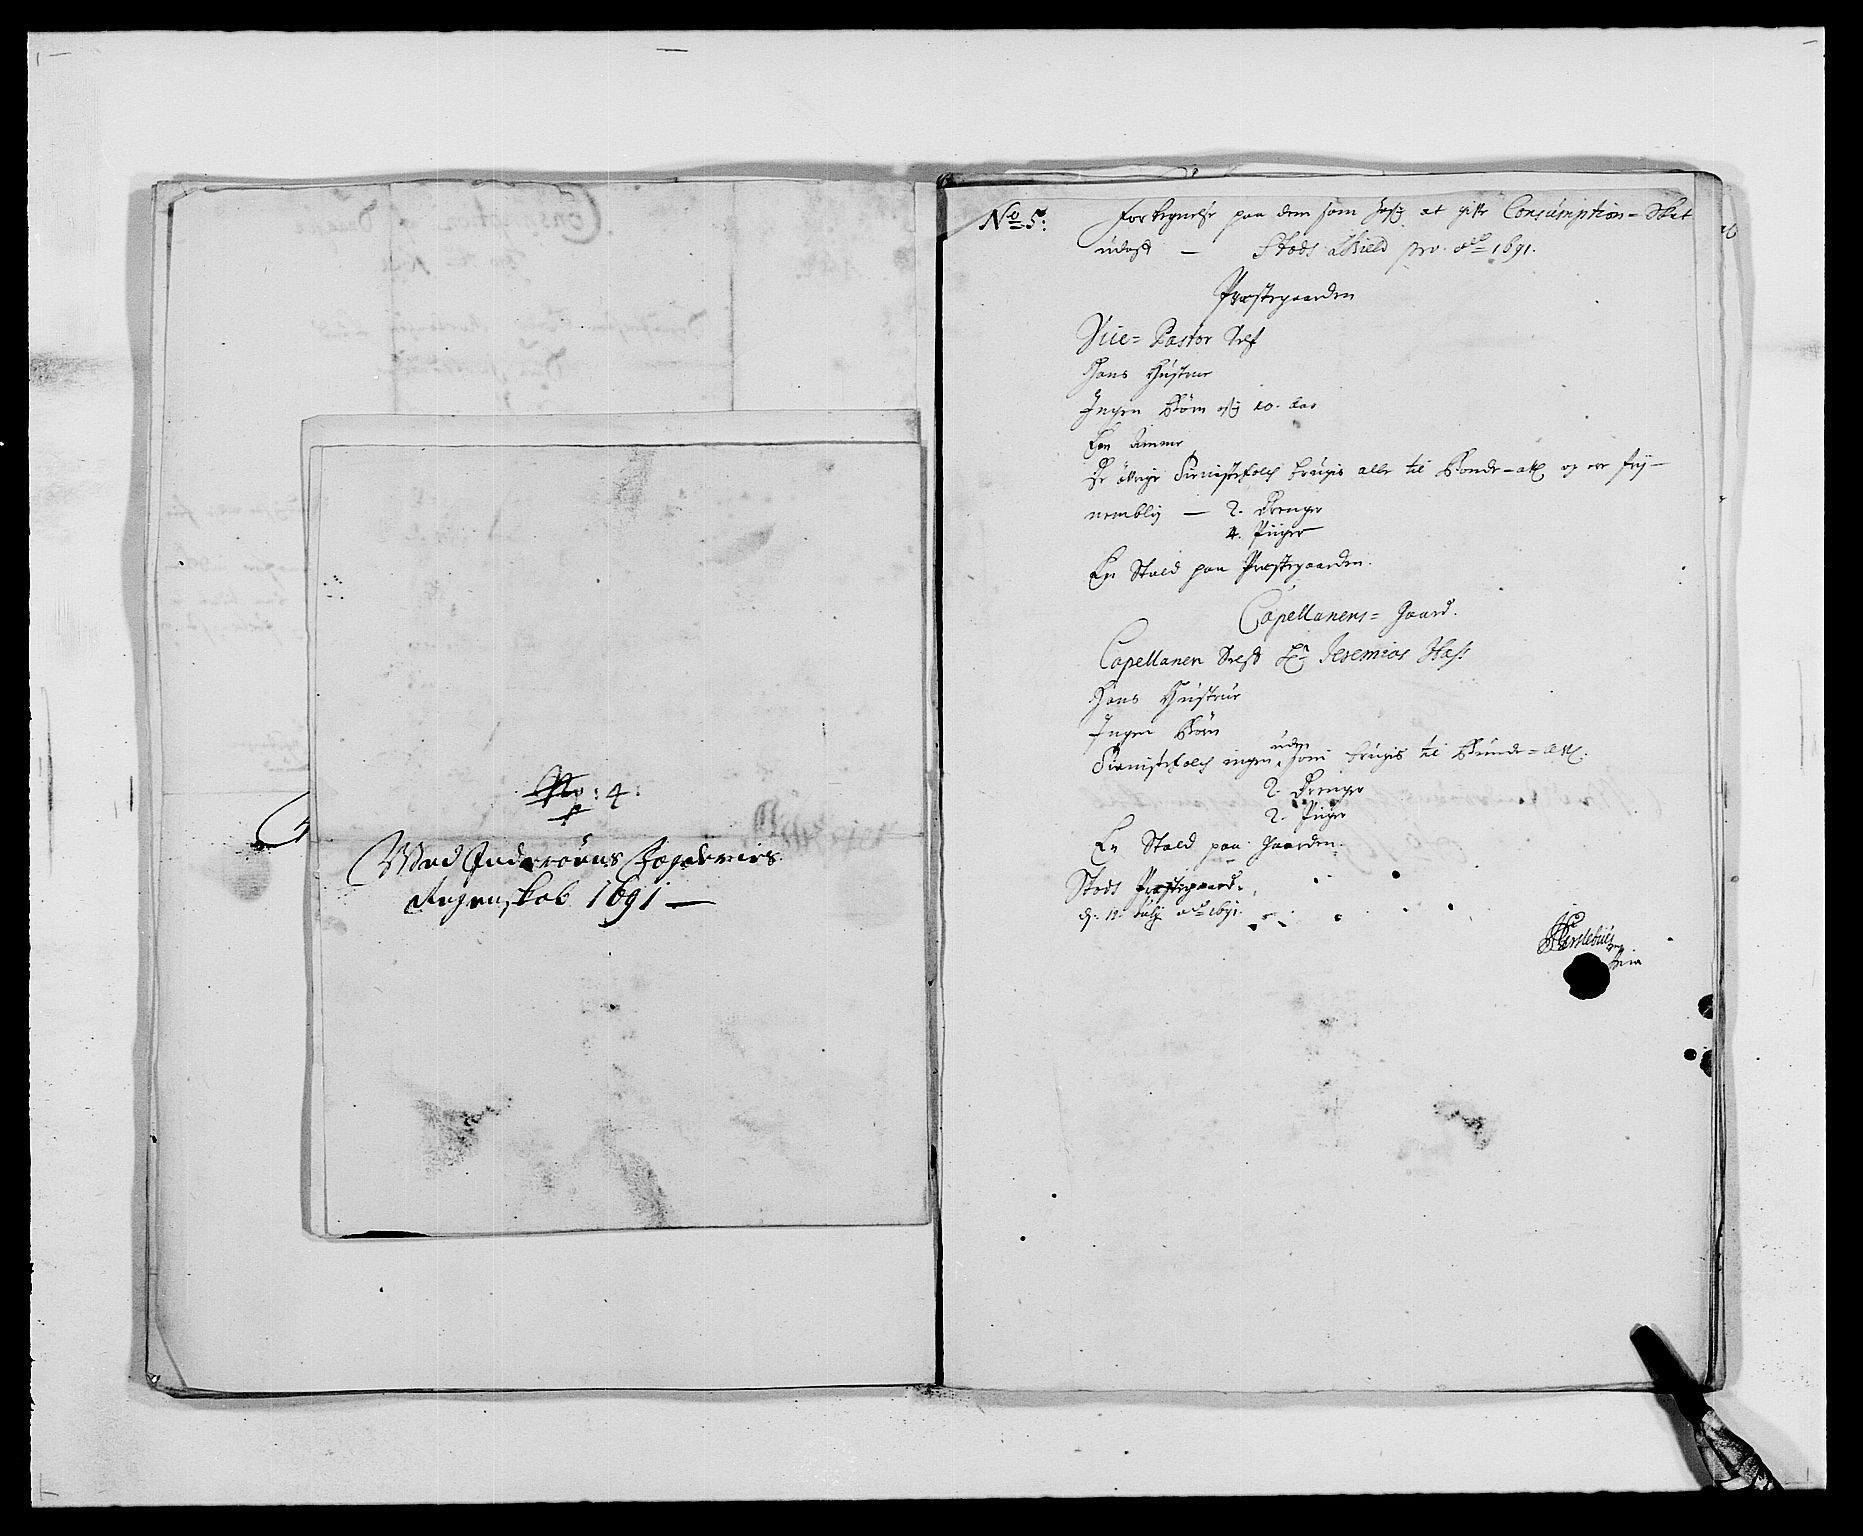 No: 4:
Med Inderøens Fogderies
Regenskab 1691 —
No 5:
Fortegnelse paa dem som at gifve Consumption = Skat
udaf — Stods Gield pro Ao 1691.
Præstegaarden
Vice = Pastor Self
Hans Hustrue
Ingen Børn 10. Aar
En Amme
De øfrige Tienistefolch brugis alle til Bonde = og ere frj —
nemblig — 2. Drenge
4. Piiger
En Stald paa Præstegaarden.
Capellanens = Gaard.
Capellanen Self Hr Jeremias
Hans Hustrue
Ingen Børn
Tienistefolch ingen uden som brugis til Bunde =
2. Drenge
2. Piiger
En Stald paa Gaarden.
Stods Præstegaard.
d. 12. Julij Ao 1691.